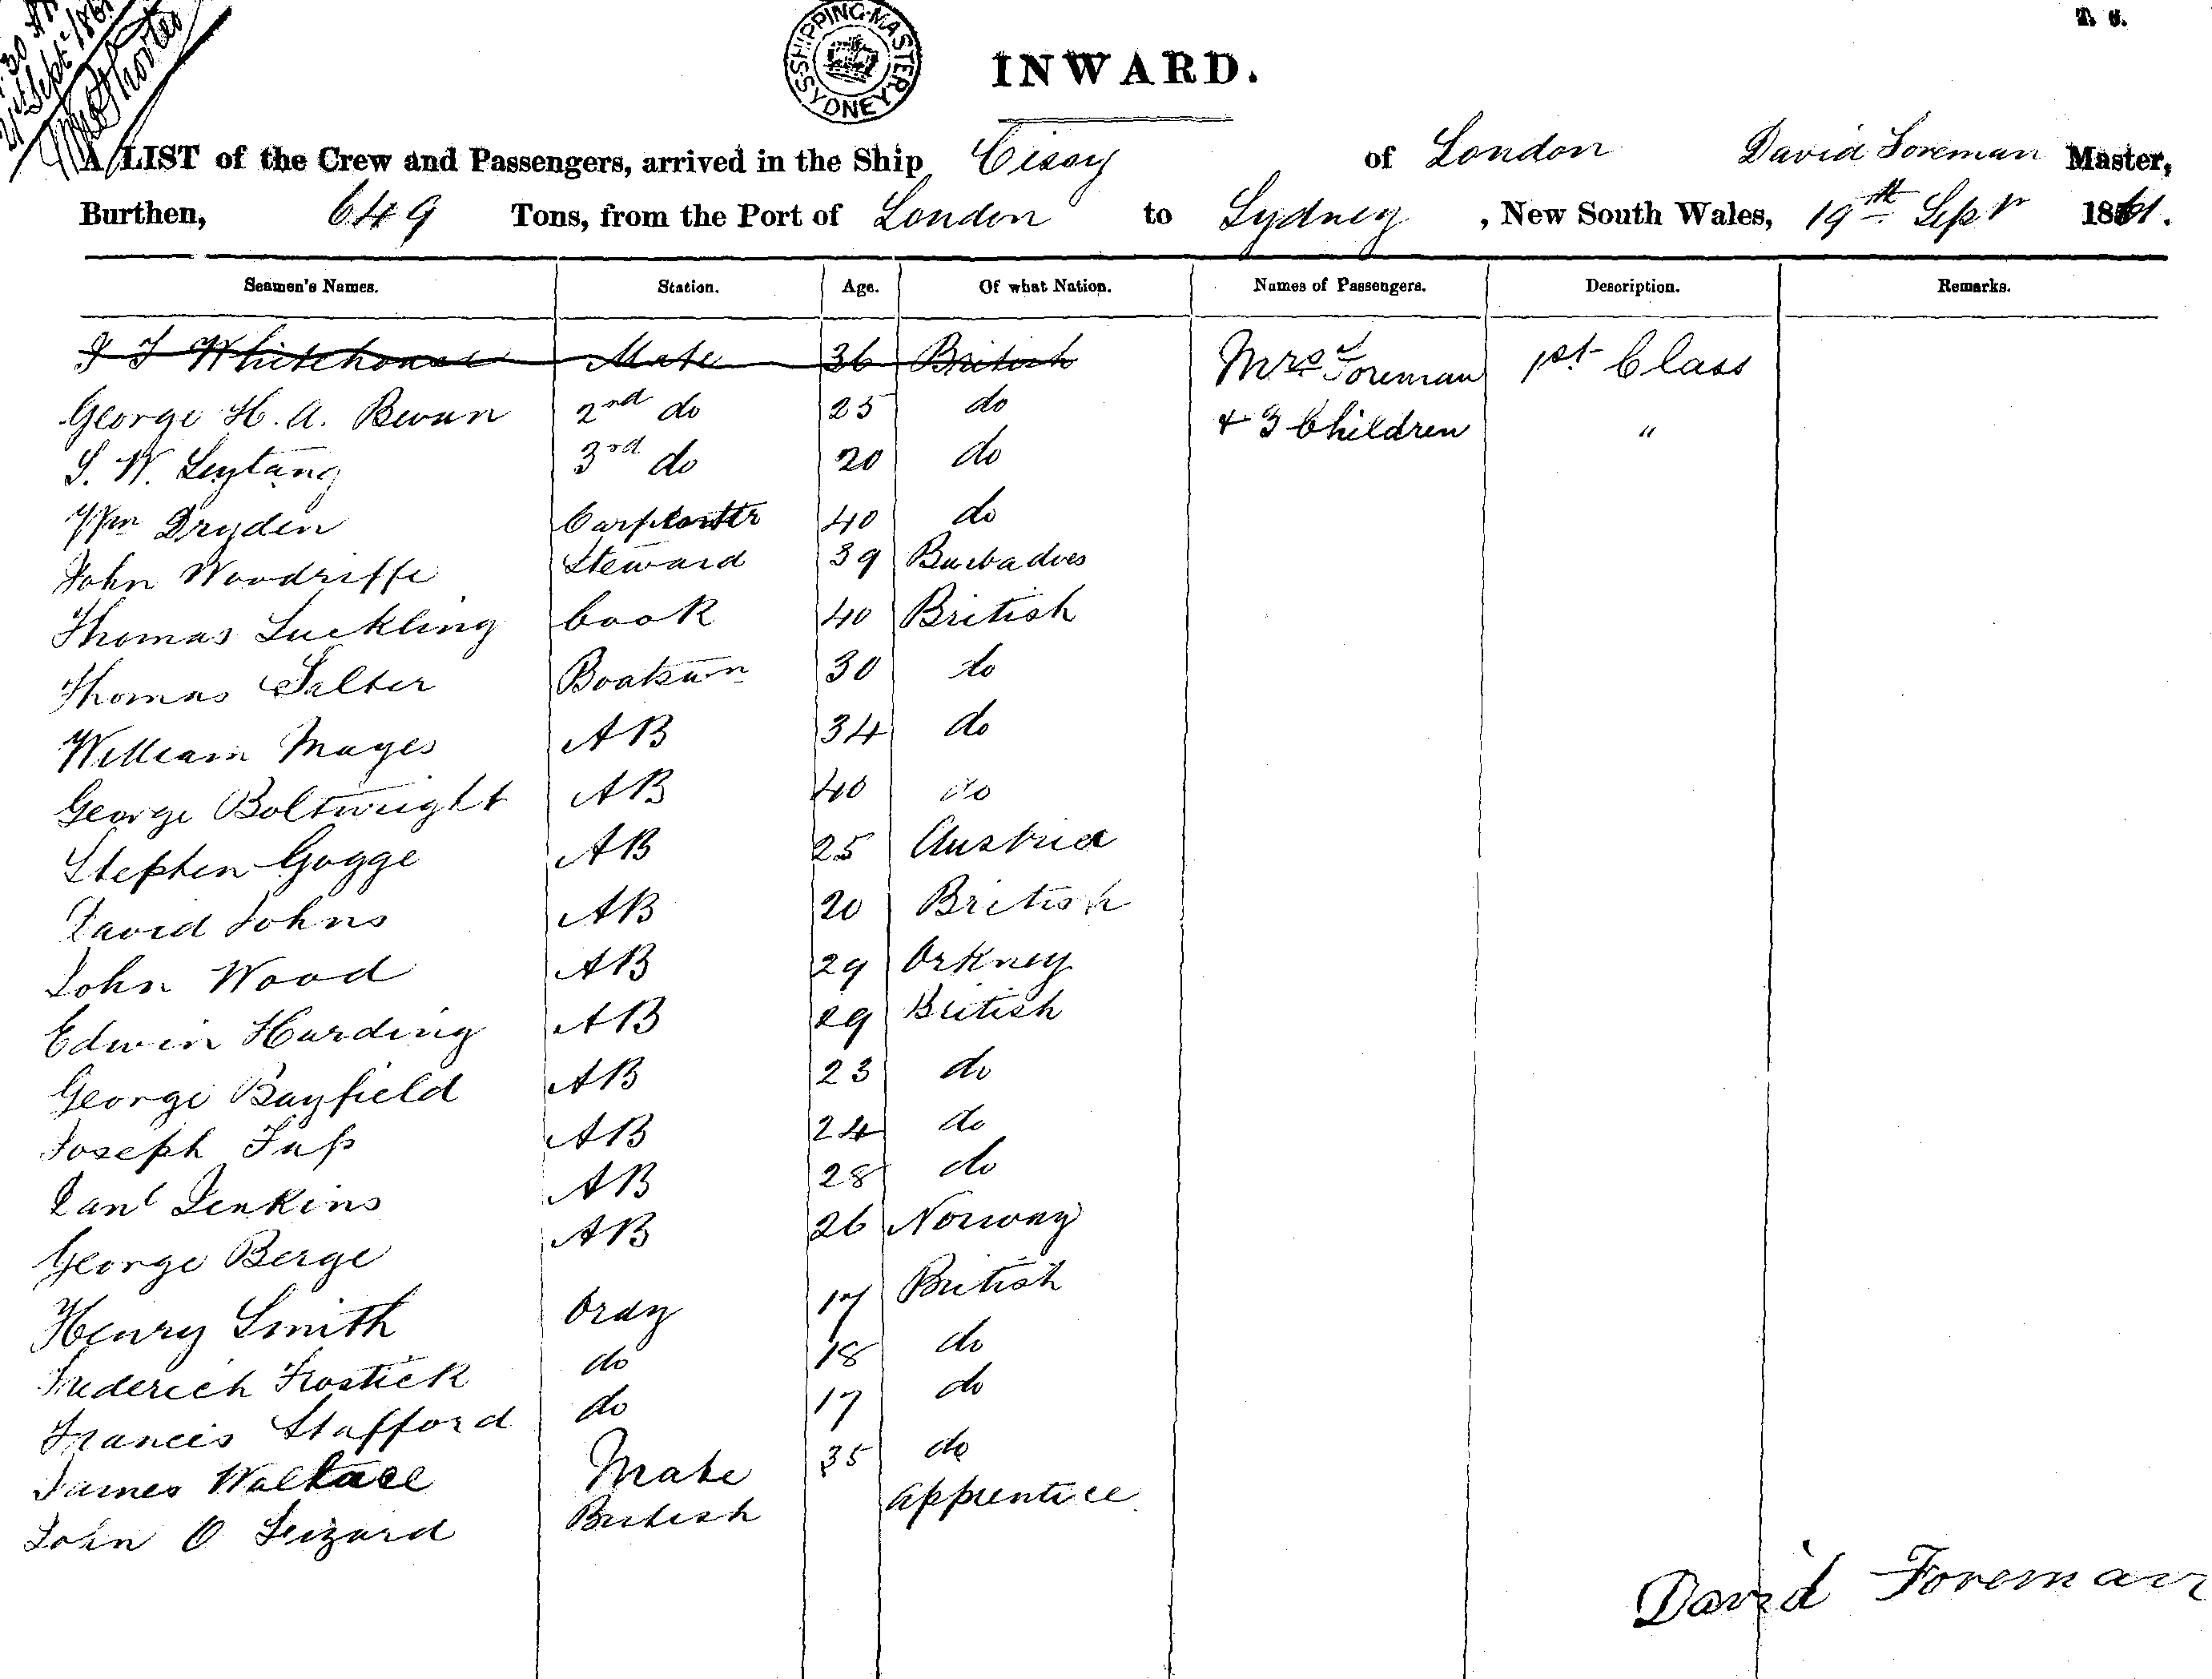 T. S.
SHIPPING MASTER SYDNEY
INWARD.
A LIST of the Crew and Passengers, arrived in the Ship Cissy of London David Foreman Master,
Burthen, 649 Tons, from the Port of London to Sydney, New South Wales, 19th Sepr 1861.
Seamen's Names. Station. Age. Of what Nation. Names of Passengers. Description. Remarks.
Whitehouse Mate 36 British Mrs Foreman 1st Class
George H. A. 2nd do 25 do + 3 Children "
S. W. 3rd do 20 do
Wm Dryden Carpenter 40 do
John Woodriffe Steward 39 Barbadoes
Thomas Luckling Cook 40 British
Thomas Salter Boatsun 30 do
William Mayes AB 34 do
George Boltwright AB 40 do
Stephen Gogge AB 25 Austria
David Johns AB 20 British
John Wood AB 29 Orkney
Edwin Harding AB 29 British
George Bayfield AB 23 do
Joseph AB 24 do
Danl Jenkins AB 28 do
George Berge AB 26 Norway
Henry Smith Ordy 17 British
Frederich Frostick do 18 do
Francis Stafford do 17 do
James Wallace Mate 35 do
John O Lizard British apprentice
David Foreman